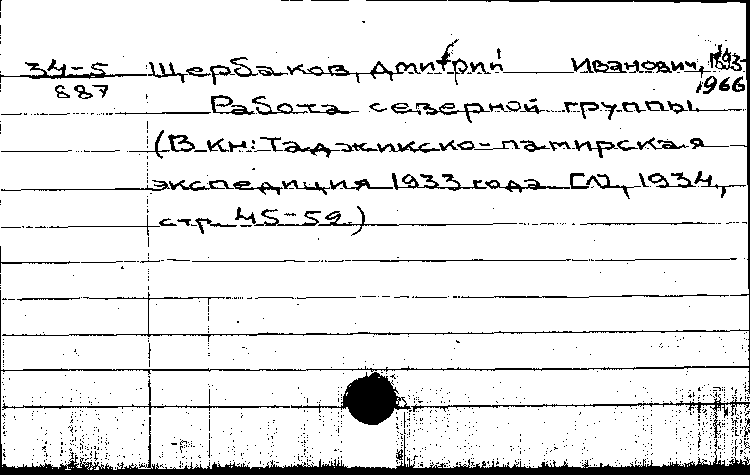 34-5 Щербаков, Дмитрий Иванович, 1893-
887 1966
Работа северной группы.
(В кн: Таджикско-памирская
экспедиция 1933 года. [Л], 1934,
стр. 45-59.)